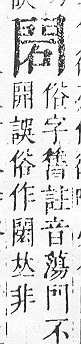 俗字舊註音蕩門不
開誤俗作𠀤非